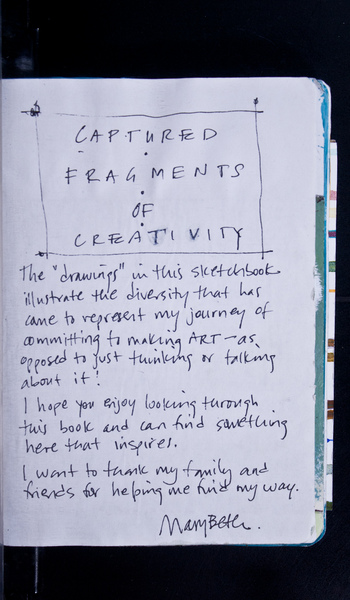 CAPTURED
FRAGMENTS
OF
CREATIVITY
The "drawings" in this sketchbook
illustrate the diversity that has
come to represent my journey of
committing to making ART - as
opposed to just thinking or talking
about it!
I hope you enjoy looking through
this book and can find something
here that inspires.
I want to thank my family and
friends for helping me find my way.
MaryBeth.